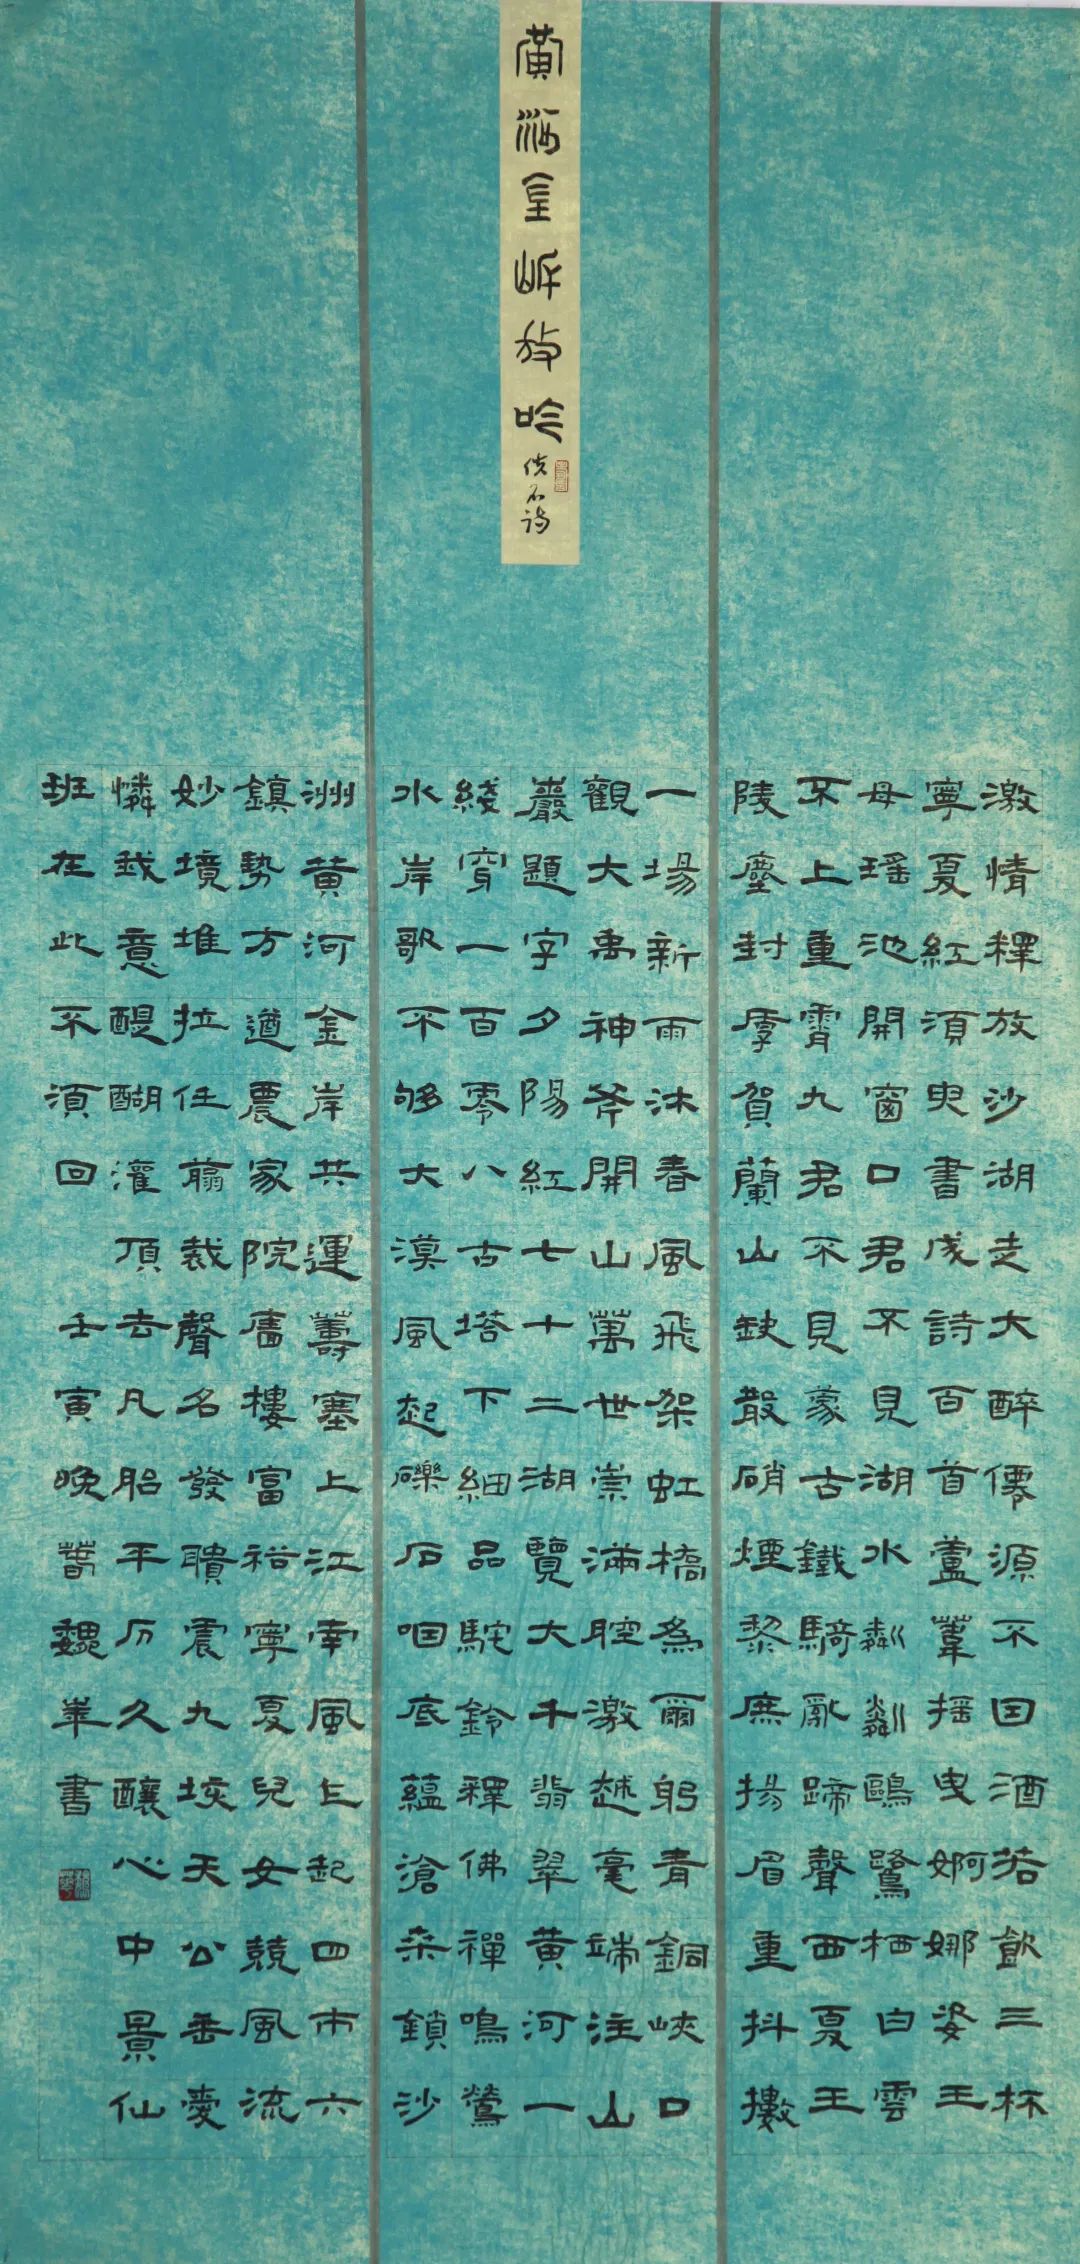 黄河金岸放吟
激情釋放沙湖走大醉僊源不因酒若飲三杯
寧夏紅須臾書成詩百首蘆葦摇曳婀娜姿王
母瑶池開窗口君不見湖水粼粼鷗鷺栖白雲
不上重霄九君不見蒙古鐵騎亂蹄聲西夏王
陵塵封厚賀蘭山缺散硝煙黎庶揚眉重抖擻
一場新雨沐春風飛架虹橋為爾躬青銅峽口
觀大禹神斧開山萬世崇滿腔激越毫端注山
巖題字夕陽紅七十二湖覽大千翡翠黄河一
綫穿一百零八古塔下細品駝鈴釋佛禪鳴鶯
水岸歌不够大漠風起礫石咽底蘊滄桑鎖沙
洲黄河金岸共運籌塞上江南風乍起四市六
鎮勢方遒農家院舊樓富裕寧夏兒女競風流
妙境堆拉任翦裁聲名發聵震九垓天公垂愛
憐我意醍醐灌頂去凡胎平历久釀心中景仙
班在此不須回 壬寅晚萅魏華書